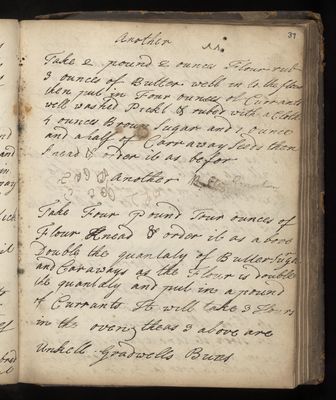 Another
37
Take 2 pound 2 ounces Flour rub
3 ounces of Butter well in to the flour
then put in Four ounces of Currants
well washed Pickt & rubed with a Cloth
4 ounces Brown Sugar and 1 ounce
and a half of Carraway Seeds then
knead & order it as befor
Another
Take Four pound Four ounces of
Flour Knead & order it as above
Double the quantaly of Butter Sugar
and Caraways as the Flour is double
the quantaly and put in a pound
of Currants It will take 3 Hours
in the oven theas 3 above are
Unkell Gradwells Buns